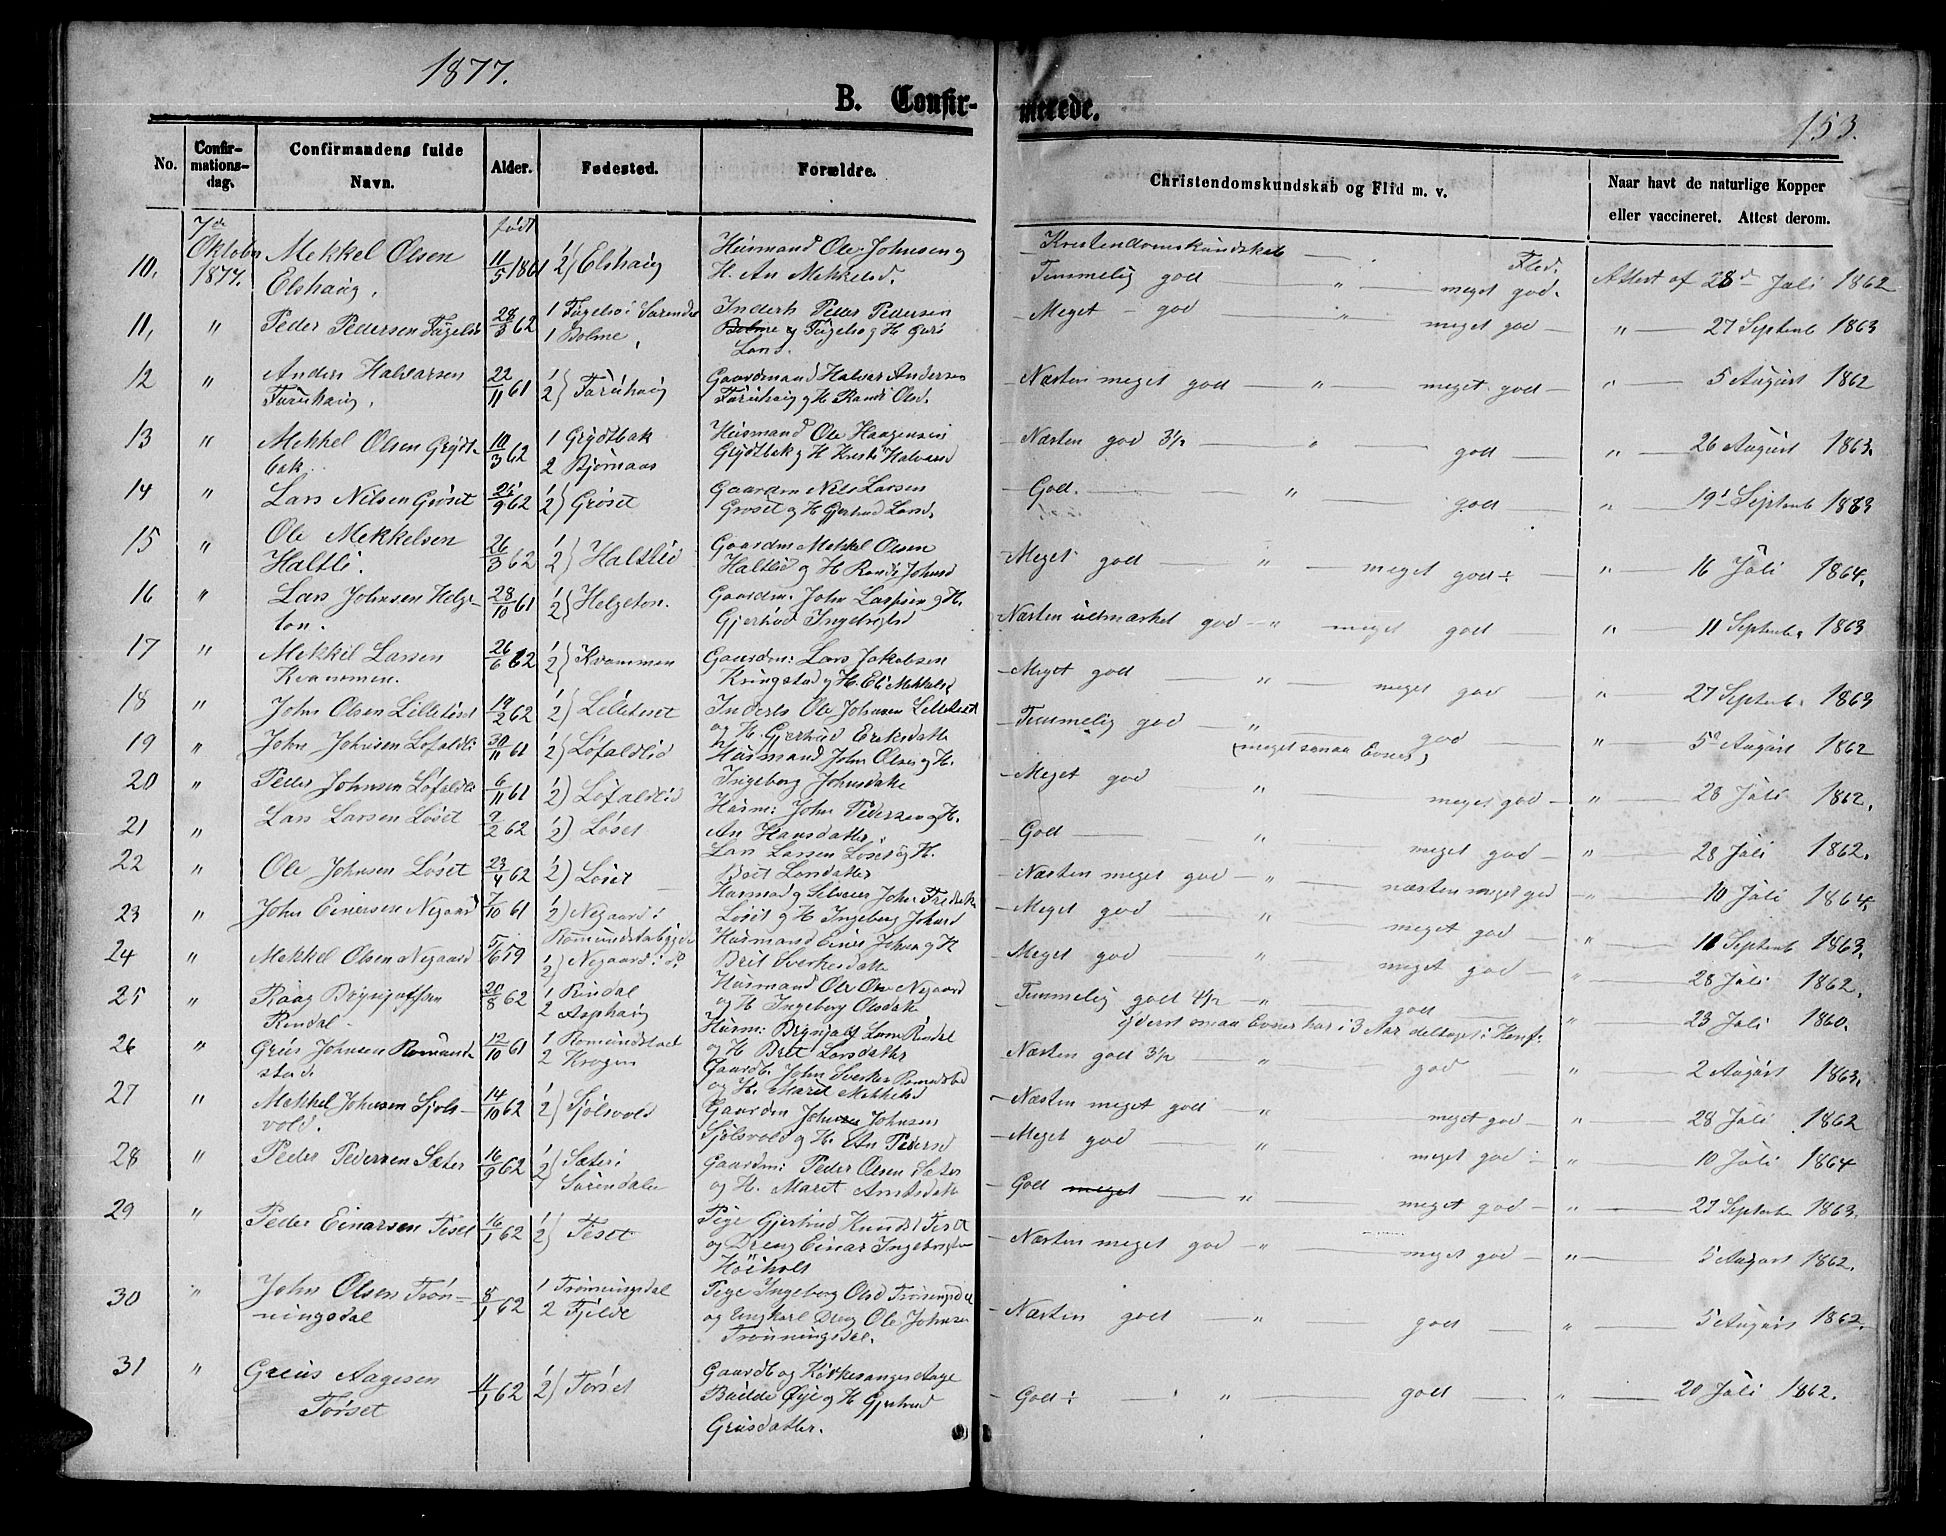 1877.
B. Confirmerede.
153.
No.
Confirmationsdag.
Confirmandens fulde Navn.
Alder.
Fødested.
Forældre.
Christendomskundskab og Flid m. v.
Naar havt de naturlige Kopper eller vaccineret. Attest derom.
10, 7de Oktober 1877. Mekkel Olsen Elshaug, født 11/5 1861 1/2) Elshaug Husmand Ole Johnsen og H. An Mekkelsd. Kristendomskundskab — Flid. Temmelig god " meget god. Attest af 28d Juli 1862
11, " Peder Pedersen Fugelsø 28/3 62 1 Fugelsø i Surendal 1 Bolme, Inderst Peder Pedersen Bolme og Fugelsø og H Guri Larsd. Meget god " meget god " 27 Septemb 1863
12 " Anders Halvarsen Faruhaug, 22/11 61 1/2) Faruhaug Gaardmand Halvar Andersen Faruhaug og H Randi Olsd. Næsten meget god " meget god " 5 August 1862
13 " Mekkel Olsen Grydtbak. 10/3 62 1 Grydtbak 2 Bjørnaas Husmand Ole Haagensen Grydtbak og H Kresti Halvarsd Næsten god 3½ " god " 26 August 1863.
14 " Lars Nilsen Grøset 25/9 62 1/2) Grøset Gaardm Nils Larsen Grøset og H Gjertrud Larsd. God. " god " 19d Septemb 1863
15 " Ole Mekkelsen Haltli. 26/3 62 1/2) Haltlid Gaardm Mekkel Olsen Haltlid og H Randi Johnsd Meget god " meget god ÷ " 16 Juli 1864.
16 " Lars Johnsen Helgeton. 28/10 61 1/2) Helgeton. Gaardm. John Larssen og H. Gjertrud Ingebrigtsd Næsten udmærket god " meget god " 11 Septembr 1863
17 " Mekkil Larsen Kvammen. 26/6 62 1/2) Kvammen Gaardm: Lars Jakobsen Kringstad og H. Eli Mekkelsd Meget god " meget god " 27 Septemb. 1863
18 " John Olsen Lilleteset 19/2 62 1/2) Lilleteset Inderst Ole Johnsen Lilleteset og H. Gjertrud Eriksdatte Temmelig god " god (meget smaa Evner) " 5d August 1862
19 " John Johnsen Løfaldli 30/11 61 1/2) Løfaldlid Husmand John Olsen og H. Ingeborg Johnsdatte Meget god " meget god " 28 Juli 1862.
20 " Peder Johnsen Løfaldli 6/11 61 1/2) Løfaldlid Husm: John Pedersen og H. An Hansdatter God " meget god " 28 Juli 1862.
21 " Lars Larsen Løset 2/2 62 1/2) Løset Lars Larsen Løset og H. Brit Larsdatter Næsten meget god " næsten meget god " 10 Juli 1864,
22 " Ole Johnsen Løset 23/4 62 1/2) Løset Husmand og Selveier John Fredrikse Løset og H Ingeborg Johnsd Meget god " meget god " 11 Septemb 1863.
23 " John Einersen Negaard 7/10 61 1/2) Negaard i Romundstabygden Husmand Einer Johnsen og H Brit Sverkesdatte Meget god " meget god " 28 Juli 1862.
24 " Mekkel Olsen Negaard 5/6 59 1/2) Negaard i do Husmand Ole Olsen Negaard og H Ingeborg Olsdatte Temmelig god 4½ " god yderst smaa Evner har i 3 Aar deltaget i Konf: " 23 Juli 1860.
25 " Brynjulfsen Rindal 20/8 62 1 Rindal 2 Asphaug Husm: Brynjulf Larsen Rindal og H Brit Larsdatter Næsten god 3½ " god " 2 August 1863.
26 " Greus Johnsen Romundstad. 12/10 61 1 Romundstad 2 Krogen Gaardb. John Sverkes Romundstad og H. Marit Mekkelsd Næsten meget god " meget god " 28 Juli 1862
27 " Mekkel Johnsen Sjølsvold. 14/10 62 1/2) Sjølsvold Gaardm Johnsen Sjølsvold og H. An Pedersd Meget god " meget god ÷ " 10 Juli 1864
28 " Peder Pedersen Sæter 16/9 62 1/2) Sæter i Surendalen Gaardm: Peder Olsen Sæter og H. Marit Arntsdatte God meget " meget god " 27 Septembr 1863.
29 " Peder Einarsen Teset 16/1 62 1/2) Teset Pige Gjertrud Knudsd Teset og Dreng Einar Ingebrigtsen Høiholt Næsten meget god " meget god " 5 August 1862.
30 " John Olsen Trønningsdal 8/1 62 1 Trønningsdal 2 Fjelde Pige Ingeborg Olsd Trønningsdal og Ungkarl Dreng Ole Johnsen Trønningsdal. Næsten god " god " 5 August 1862.
31 " Greus Aagesen Tørset 4/1 62 1/2) Tørset Gaardb og Kirkesanger Aage Øye og H Gjertrud Greusdatter. God ÷ " god " 20 Juli 1862.